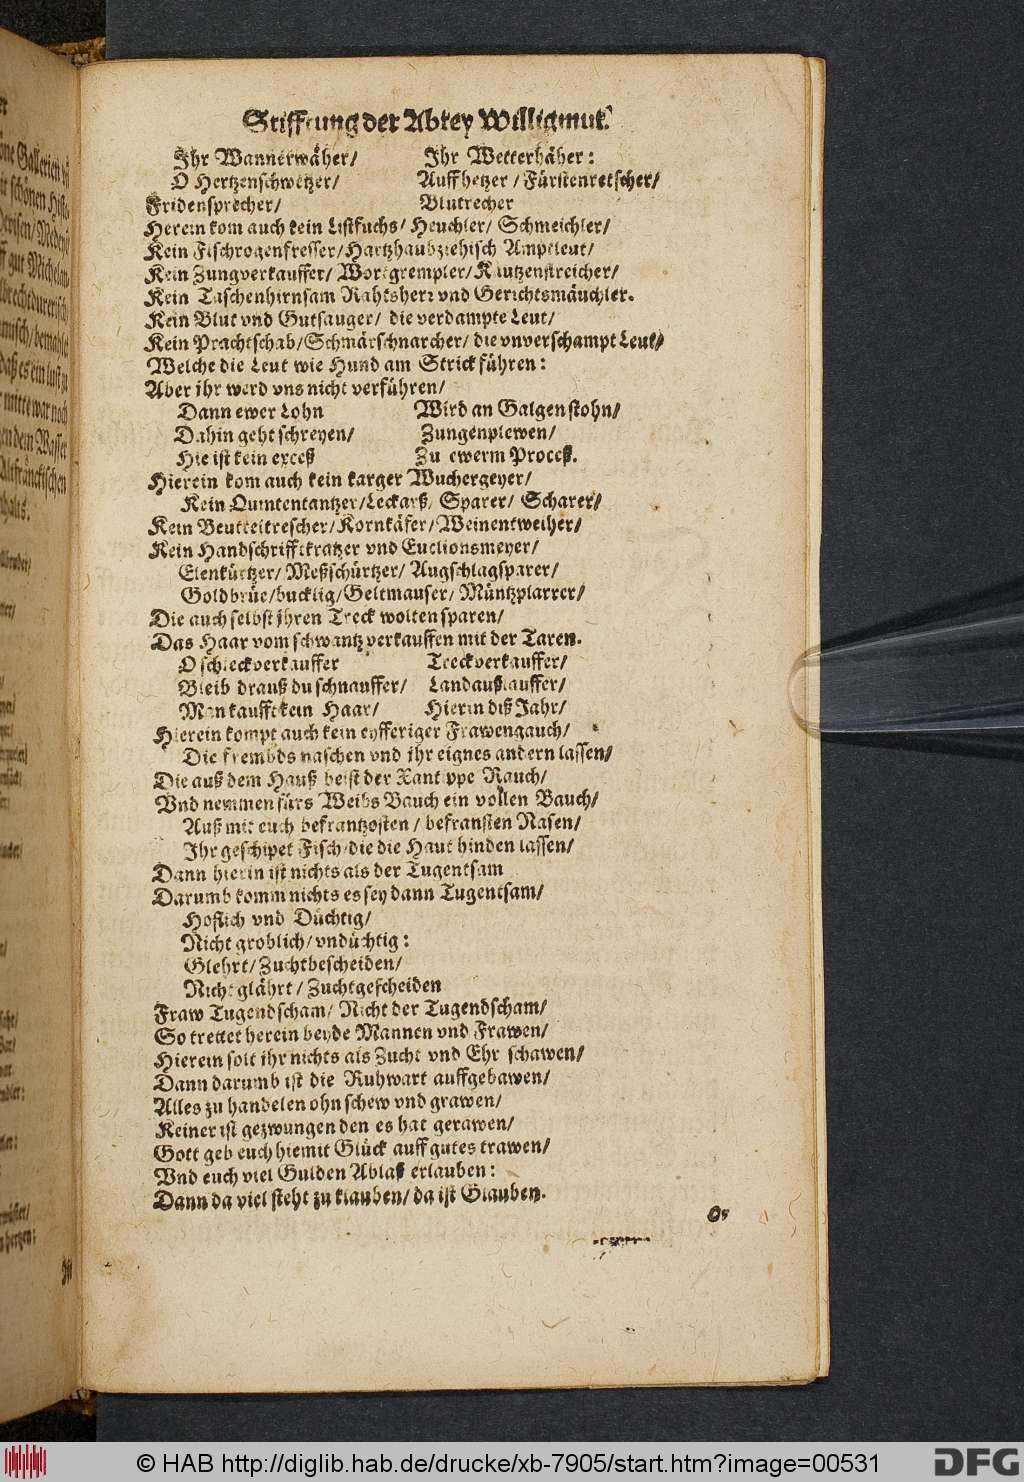 Stifftung der Abtey Willigmut.
Ihr Wannerwäher/ Ihr Wetterhäher:
O Hertzenschwetzer/ Auffhetzer / Fürstenretscher/
Fridensprecher/ Blutrecher
Herein kom auch kein Listfuchs/ Heuchler/ Schmeichler/
Kein Fischrogenfresser/ Hartzhaubziehisch Amptleut/
Kein Zungverkauffer/ Wortgrempler/ Klutzenstreicher/
Kein Taschenhirnsam Rahtsherr vnd Gerichtsmäuchler.
Kein Blut vnd Gutsauger/ die verdampte Leut/
Kein Prachtschab/ Schmärschnarcher/ die vnverschampt Leut/
Welche die Leut wie Hund am Strick führen:
Aber ihr werd vns nicht verführen/
Dann ewer Lohn Wird an Galgen stohn/
Dahin geht schreyen/ Zungenplewen/
Hie ist kein exceß Zu ewerm Proceß.
Hierein kom auch kein karger Wuchergeyer/
Kein Quintentantzer/ Leckarß/ Sparer/ Scharer/
Kein Beutteltrescher/ Kornkäfer/ Weinentweiher/
Kein Handschrifftkratzer vnd Euclionsmeyer/
Elenkürtzer/ Meßschürtzer/ Augschlagsparer/
Goldbrüe/ bucklig/ Geltmauser/ Müntzplarrer/
Die auch selbst jhren Treck wolten sparen/
Das Haar vom schwantz verkauffen mit der Taren.
O schleckverkauffer Treckverkauffer/
Bleib drauß du schnauffer/ Landaußlauffer/
Man kaufft kein Haar/ Hierin diß Jahr/
Hierein kompt auch kein eyfferiger Frawengauch/
Die frembds naschen vnd jhr eignes andern lassen/
Die auß dem Hauß beist der Xantippe Rauch/
Vnd nemmen fürs Weibs Bauch ein vollen Bauch/
Auß mit euch befrantzosten / befransten Nasen/
Ihr geschipet Fisch/ die die Haut hinden lassen/
Dann hierin ist nichts als der Tugentsam
Darumb komm nichts es sey dann Tugentsam/
Höflich vnd Düchtig/
Nicht groblich/ vndüchtig:
Glehrt/ Zuchtbescheiden/
Nicht glährt / Zuchtgescheiden
Fraw Tugendscham/ Nicht der Tugendscham/
So trettet herein beyde Mannen vnd Frawen/
Hierein solt ihr nichts als Zucht vnd Ehr schawen/
Dann darumb ist die Ruhwart auffgebawen/
Alles zu handelen ohn schew vnd grawen/
Keiner ist gezwungen den es hat gerawen/
Gott geb euch hiemit Glück auff gutes trawen/
Vnd euch viel Gulden Ablaß erlauben:
Dann da viel steht zu klauben/ da ist Glauben.
© HAB http://diglib.hab.de/drucke/xb-7905/start.htm?image=00531
DFG